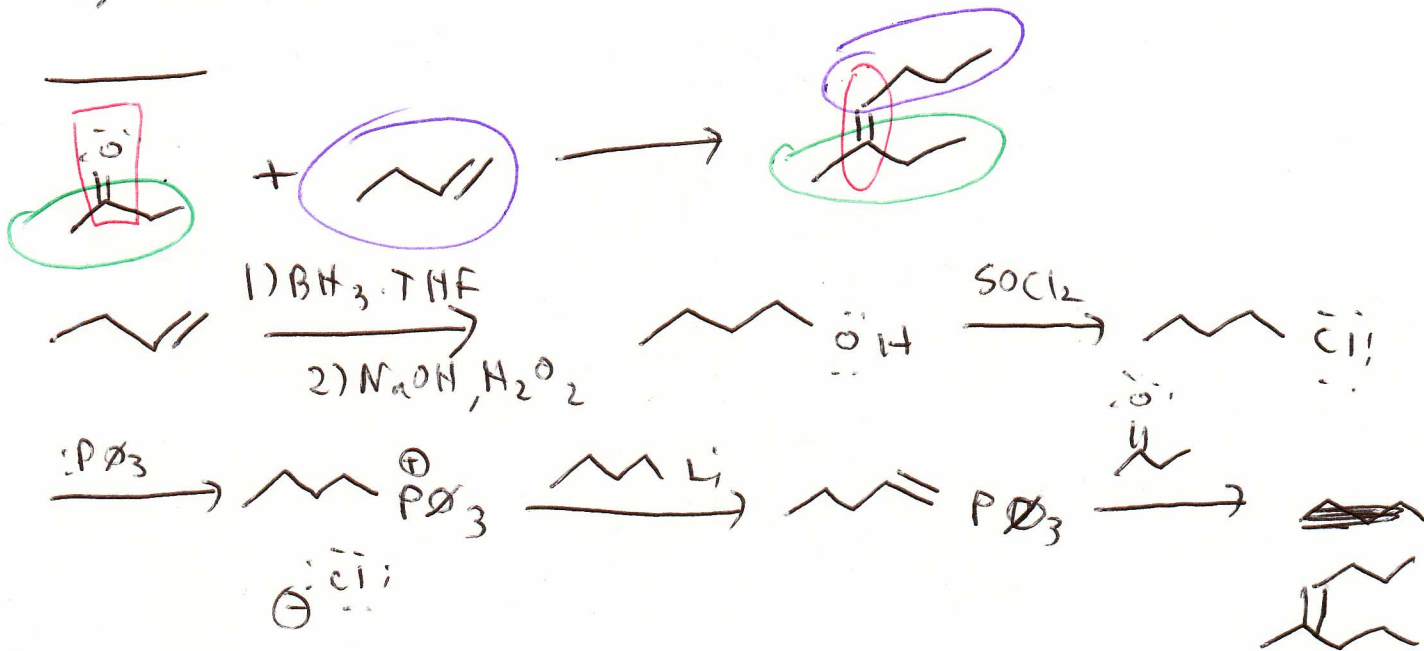 :Ö
+
1) BH3·THF
2) NaOH, H2O2
ÖH
SOCl2
Cl
:PØ3
⊕
PØ3
⊖ :Cl:
Li
PØ3
:O: